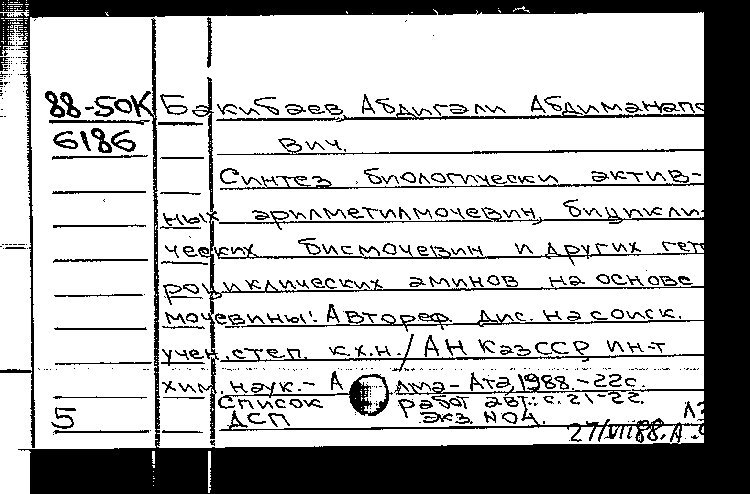 88-50К Бакибаев Абдигали Абдиманапо
6186 вич.
Синтез биологически актив-
ных арилметилмочевин, бицикли-
ческих бисмочевин и других гет
роциклических аминов на основе
мочевины: Автореф. дис. на соиск.
учен. степ. к.х.н. / АН КазССР, ин-т
хим. наук. - Алма-Ата, 1988. - 22с.
Список работ авт.: с. 21-22.
5 ДСП Экз. N04.
27/VII88. Д.